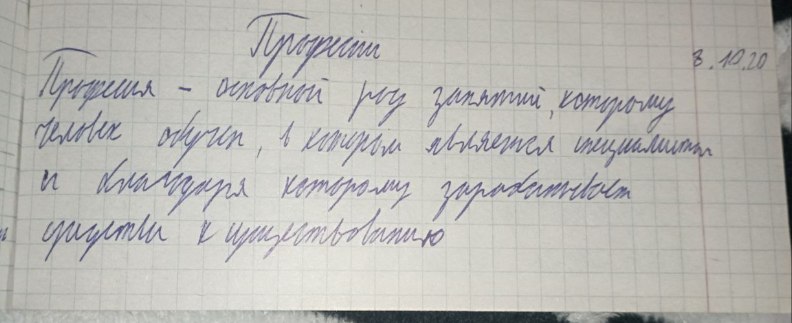 Профессии
8.10.20
Профессия - основной род занятий, которому
человек обучен, в котором является специалистом
и благодаря которому зарабатывает
средства к существованию